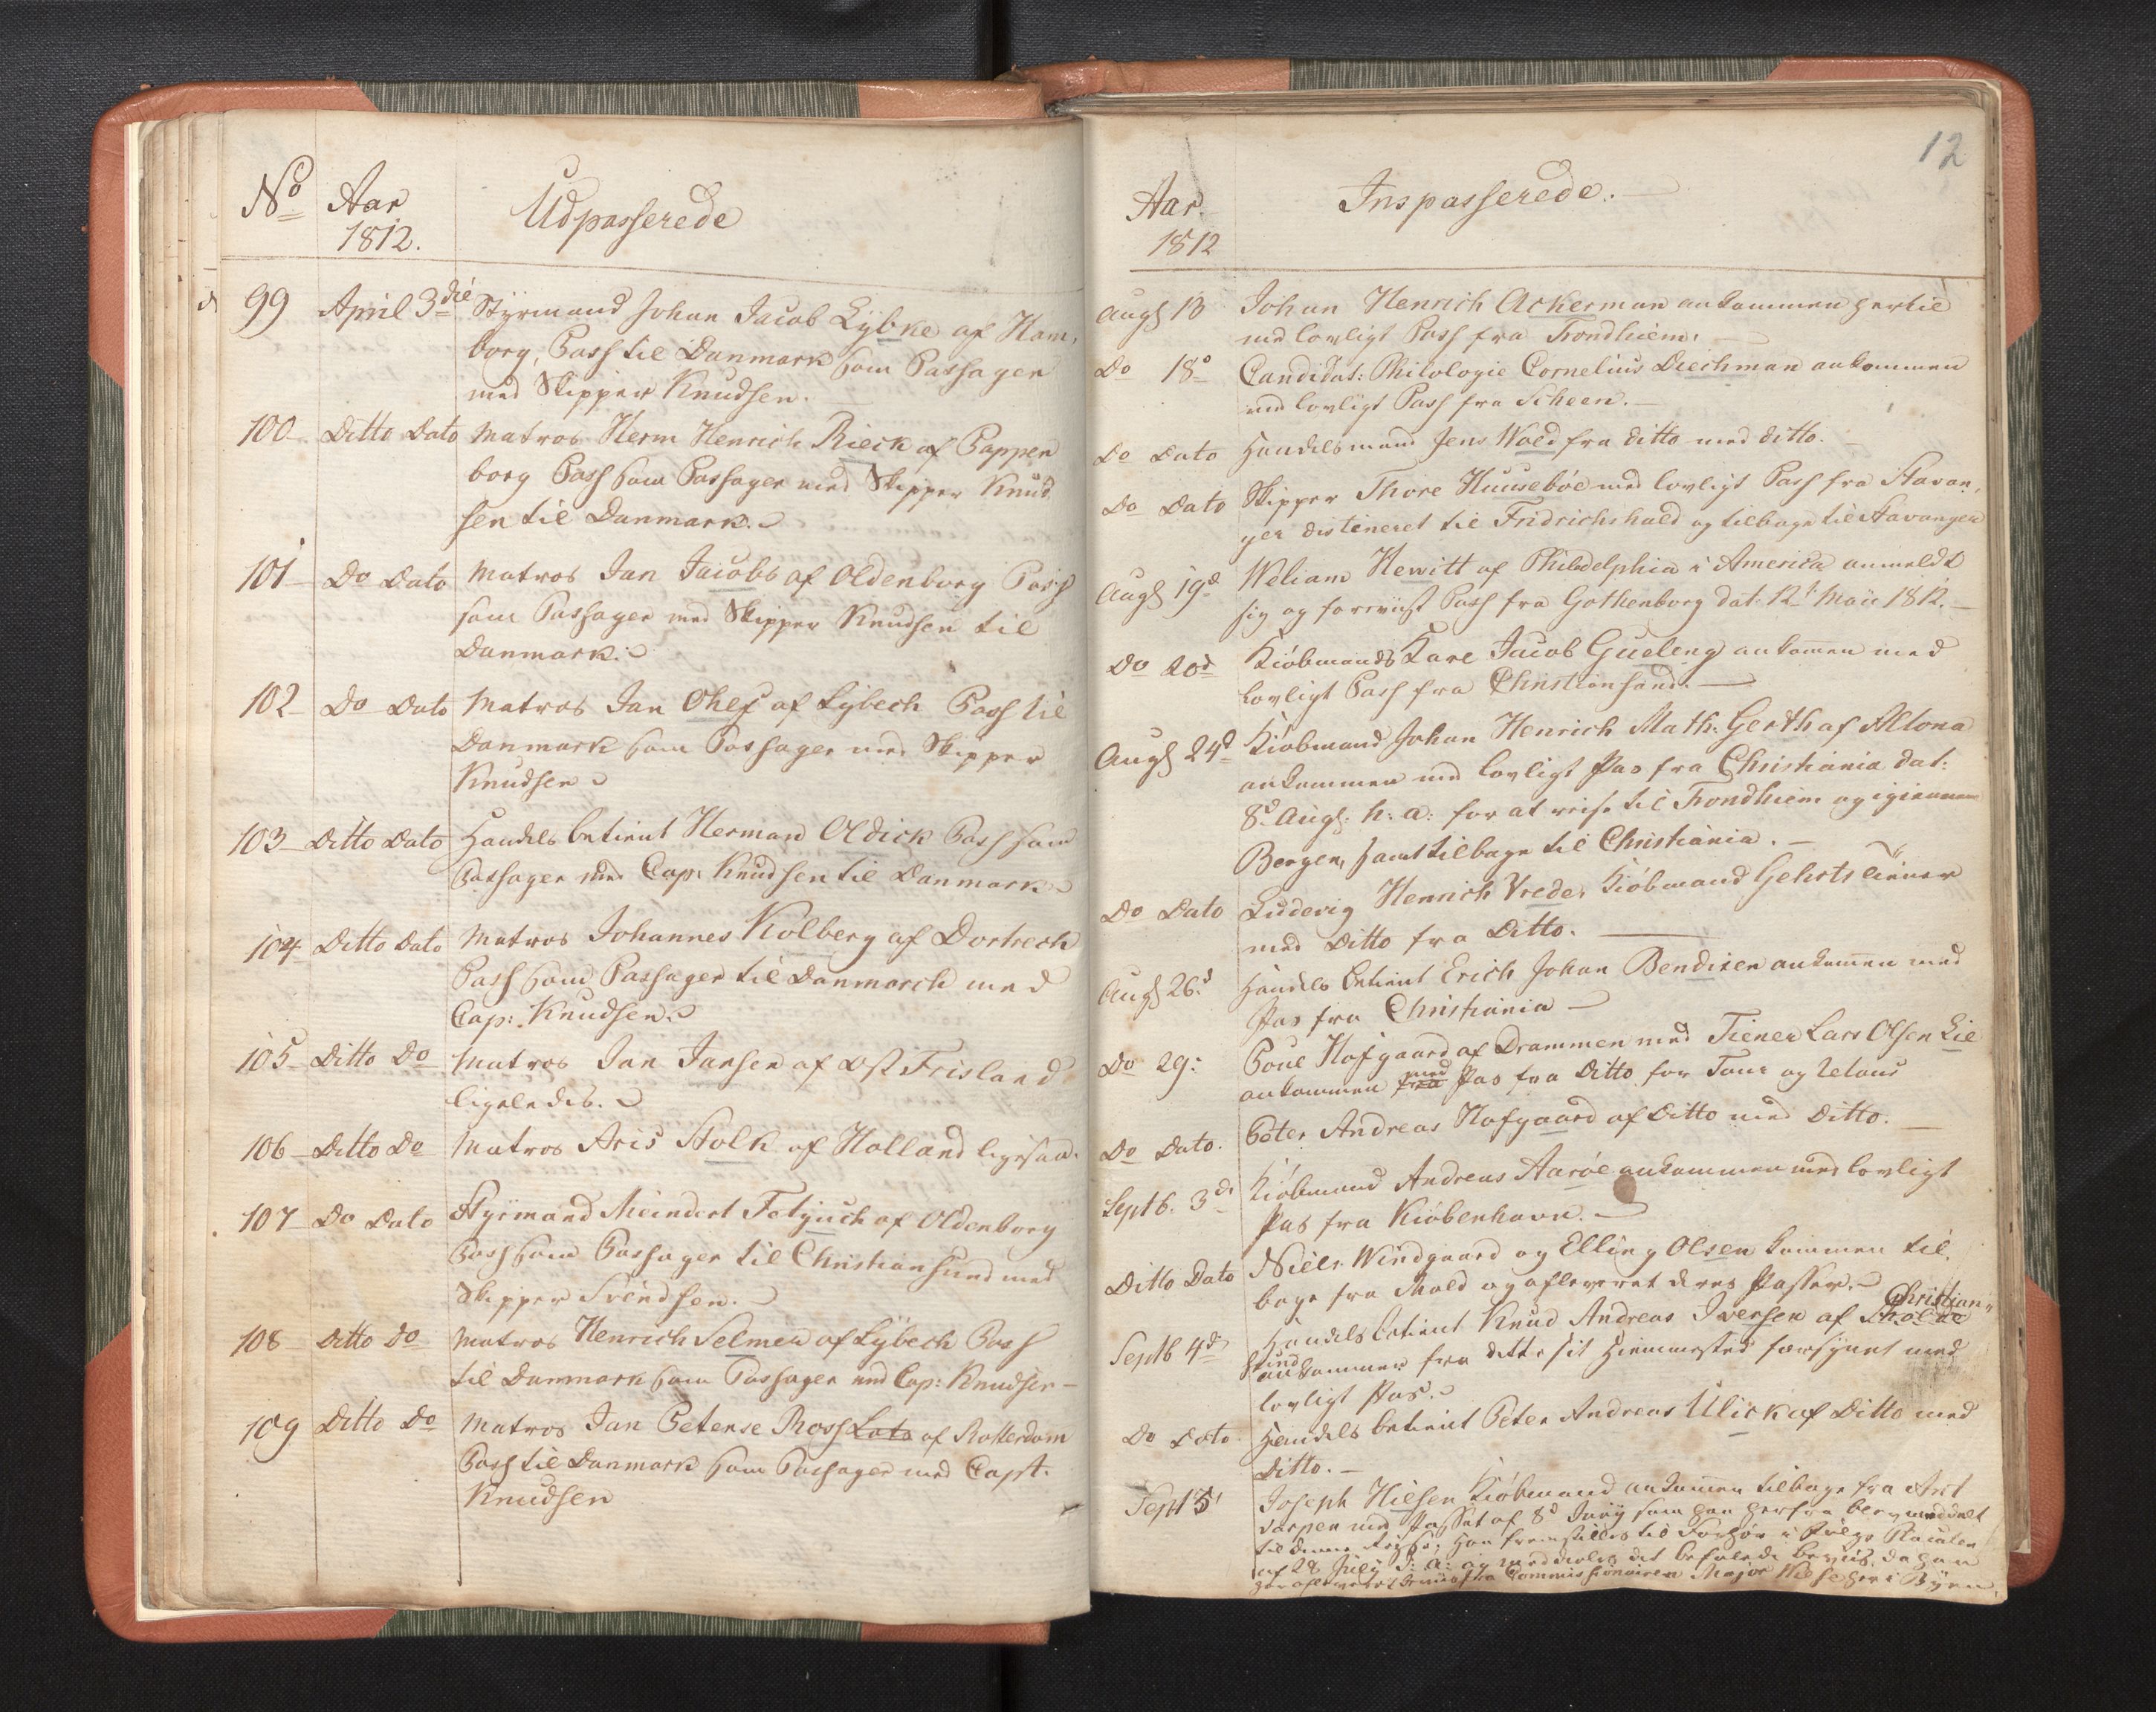 No Aar Udpasserede
1812.
99 April 3die Styrmand Johan Jacob Lybke af Ham,
borg, Pass til Danmark som Passager
med Skipper Knudsen.
100 Ditto Dato Matros Herm Henrich Rieck af Pappen
borg Pass som Passager med Skipper Knud
sen til Danmark.
101 Do Dato Matros Jan Jacobs af Oldenborg Pass
som Passager med Skipper Knudsen til
Danmark.
102 Do Dato Matros Jan Ohls af Lybech Pass til
Danmark som Passager med Skipper
Knudsen
103 Ditto Dato Handels betient Herman Oldick Pass som
Passager med Cap: Knudsen til Danmark
104 Ditto Dato Matros Johannes Kolberg af Dortrech
Pass som Passager til Danmarck med
Cap: Knudsen.
105 Ditto Do Matros Jan Jansen af Ost Frisland
ligeledes.
106 Ditto Do Matros Aris Stolk af Holland ligesaa.
107 Do Dato Styrmand Meindert Fetjuch af Oldenborg
Pass som Passager til Christiansund med
Skipper Svendsen.
108 Ditto Do Matros Henrich Selmer af Lybech Pass
til Danmark som Passager med Cap: Knudsen
109 Ditto Do Matros Jan Petense Ross Lots af Rotterdam
Pass til Danmark som Passager med Capt.
Knudsen
12
Aar. Inspasserede.
1812
Augs 13 Johan Henrich Ackerman ankommen hertil
med lovligt Pass fra Trondhiem.
Do 18de Candidat: Philologie Cornelius Diechman ankommen
med lovligt Pass fra Scheen.
Do Dato Handelsmand Jens Wold fra ditto med ditto.
Do Dato Skipper Thore Huusebøe med lovligt Pass fra Stavan,
ger distineret til Fridrichshald og tilbage til Stavanger
Augs 19d Weliam Hewitt af Philadelphia i America anmeldt
sig og foreviist Pass fra Gothenborg dat. 12t Maii 1812.
Do 20d Kiøbmands Karl Jacob Gueleng ankommen med
lovligt Pass fra Christiansand.
Augs 24d Kiøbmand Johan Henrich Math: Gerth af Altona
ankommen med lovligt Pas fra Christiania dat:
8d Augs: h: a: for at reise til Trondhiem og igiennem
Bergen, samt tilbage til Christiania.
Do Dato Ludevig Henrich Vrede, Kiøbmand Gehrts tiener
med Ditto fra Ditto.
Augs 26d Handels betient Erich Johan Bendixen ankommen med
Pas fra Christiania
Do 29: Poul Hofgaard af Drammen med Tiener Lars Olsen Lie
ankommen fra med Pas fra Ditto for Tour og Retour
Do Dato. Peter Andreas Hofgaard af Ditto med Ditto.
Septb. 3d Kiøbmand Andreas Aarøe ankommen med lovligt
Pas fra Kiøbenhavn.
Ditto Dato Niels Windgaard og Elling Olsen kommen til,
bage fra Mold og afleveret deres Passer.
Septb 4d Handels betient Knud Andreas Iversen af Christian,
sund ankommen fra dette sit Hiemmested forsynet med
lovligt Pas.
Do Dato. Handels betient Peter Andreas Ulick af Ditto med
Ditto.
Sept 5 Joseph Hielsen Kiøbmand ankommen tilbage fra Art
darpen med Passet af 8d Junij som han herfra blev meddeelt
til denne Reyse; han fremstilles til Forhør i Følge Placaten
af 28 July d: a: og meddeeles det befalede beviis, da han
Commissionairen Major her i Byen.